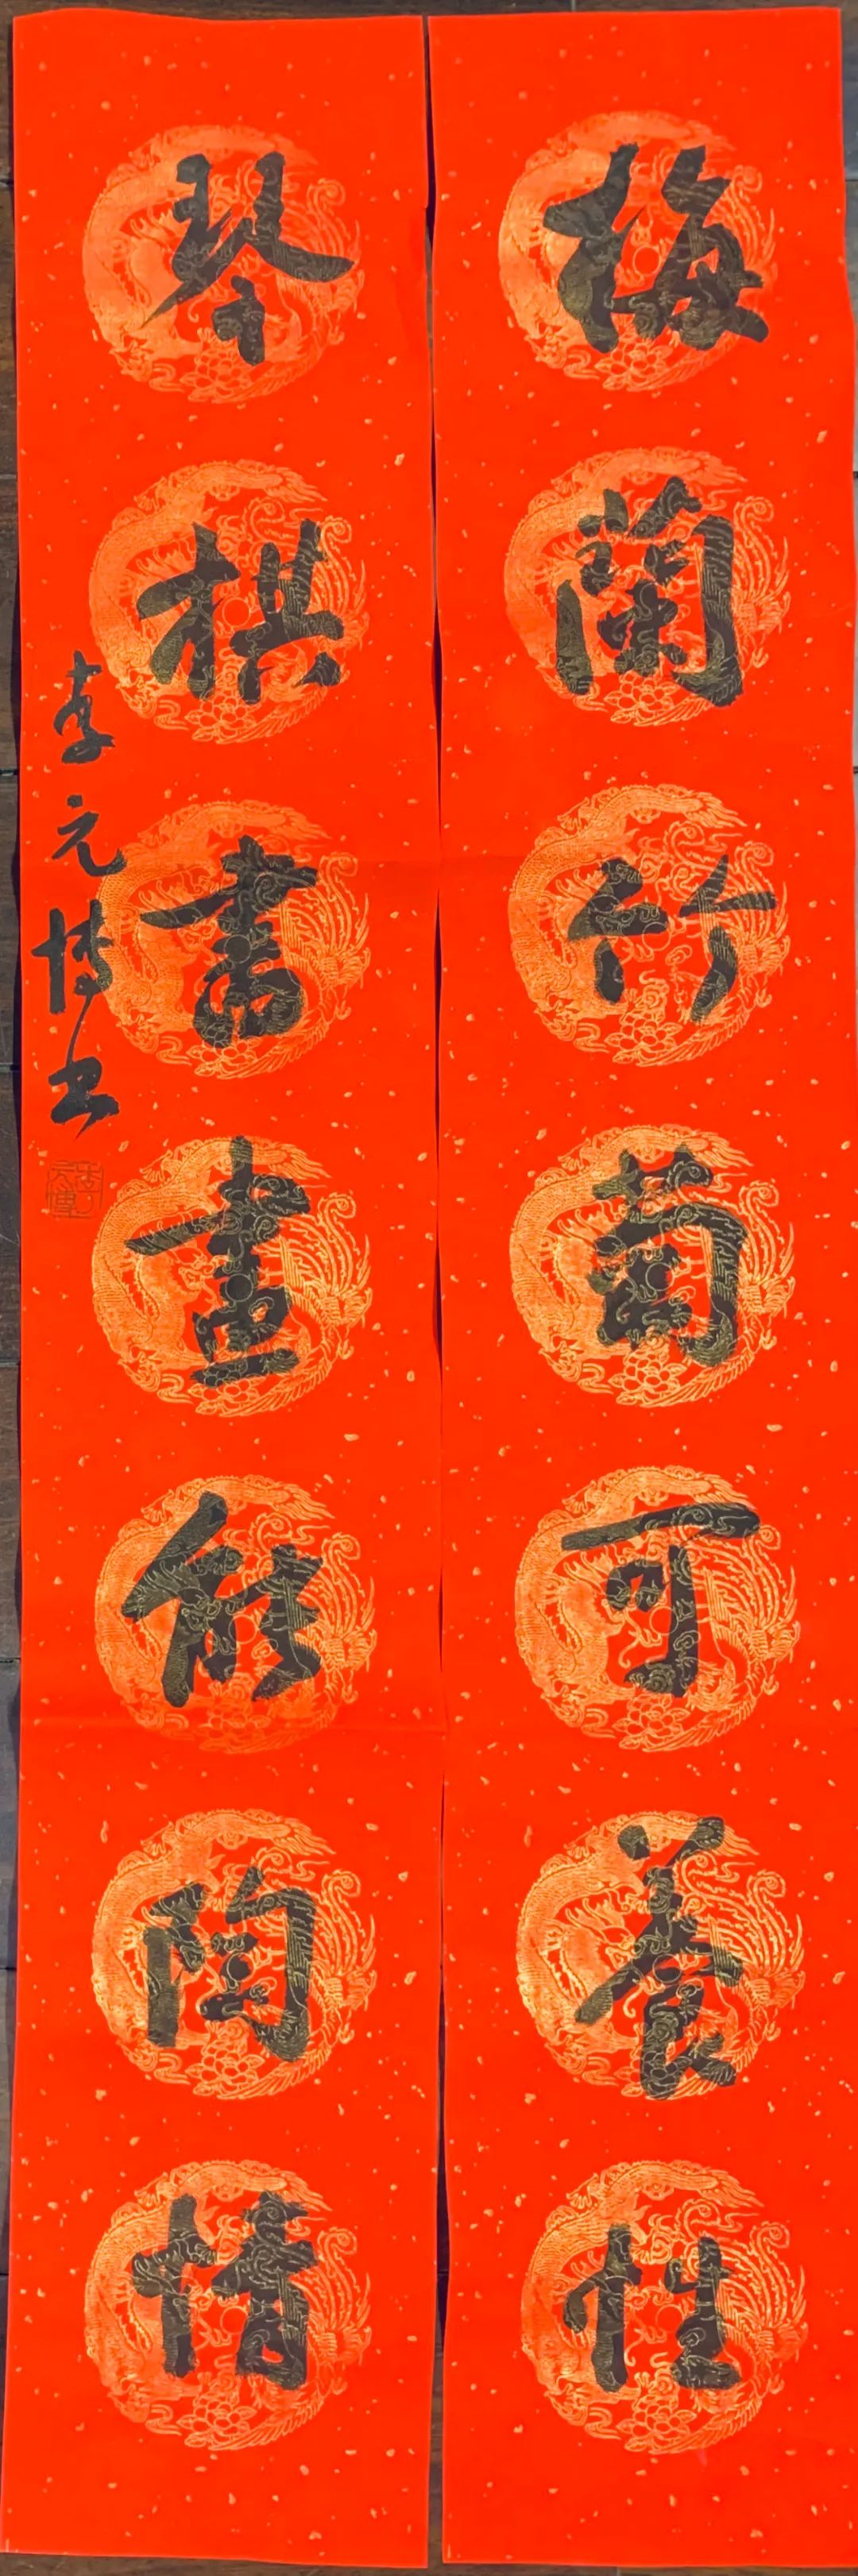 梅蘭竹菊可養性
琴棋書畫能陶情
李元博书
李元博